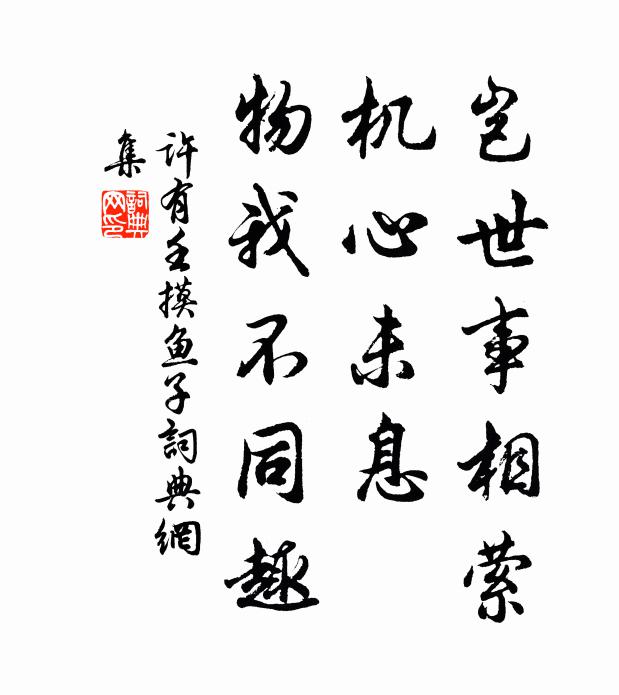 岂世事相萦
机心未息
物我不同趣
许有壬摸鱼子詞典網
集
詞典网印